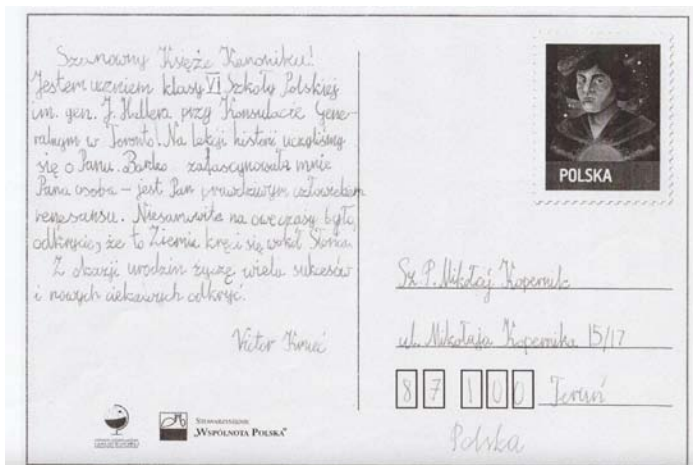 Szanowny Księże Kanoniku!
Jestem uczniem klasy VI Szkoły Polskiej
im. gen. J. Hallera przy Konsulacie Gene-
ralnym w Toronto. Na lekcji historii uczyliśmy
się o Panu. Bardzo zafascynowała mnie
Pana osoba – jest Pan prawdziwym człowiekiem
renesansu. Niesamowite na owe czasy było
odkrycie, że to Ziemia kręci się wokół Słońca.
Z okazji urodzin życzę wielu sukcesów
i nowych ciekawych odkryć.
Victor
STOWARZYSZENIE
„WSPÓLNOTA POLSKA”
POLSKA
Sz. P. Mikołaj Kopernik
ul. Mikołaja Kopernika 15/17
87 100 Toruń
Polska